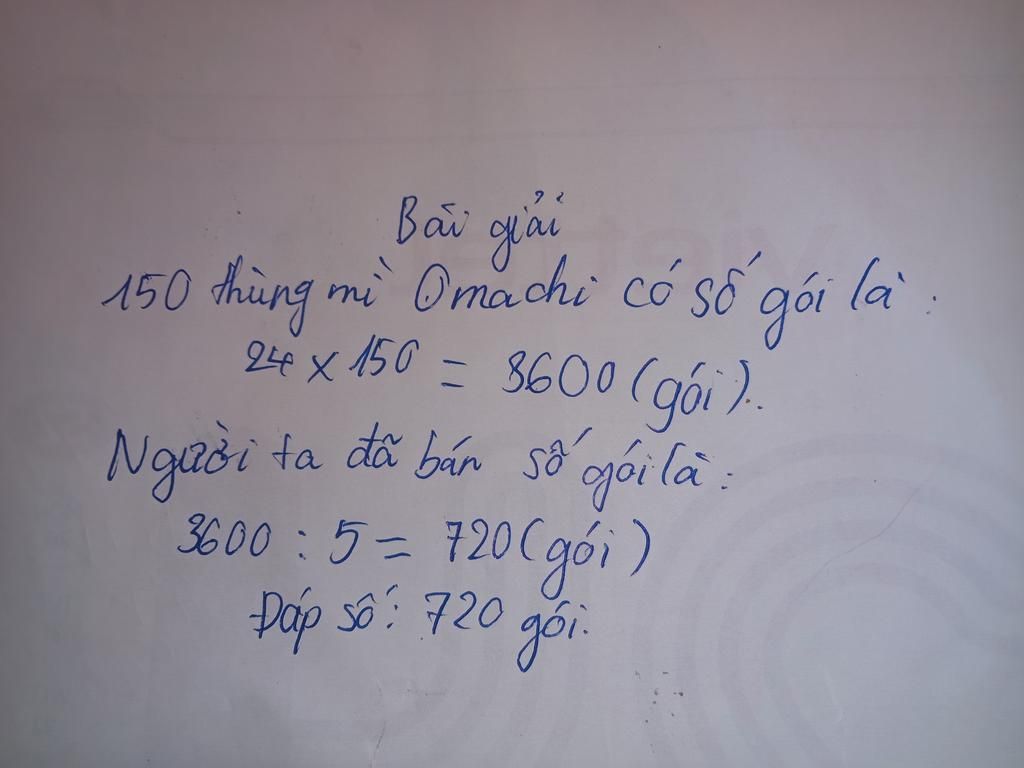 Bài giải
150 thùng mì Omachi có số gói là :
24 x 150 = 3600 (gói).
Người ta đã bán số gói là :
3600 : 5 = 720 (gói)
Đáp số: 720 gói.